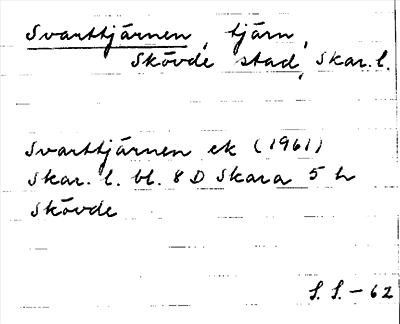 Svarttjärnen, tjärn,
Skövde stad, Skar. l.
Svarttjärnen ek (1961)
Skar. l. bl. 8 D Skara 5 h
Skövde
S. S. - 62